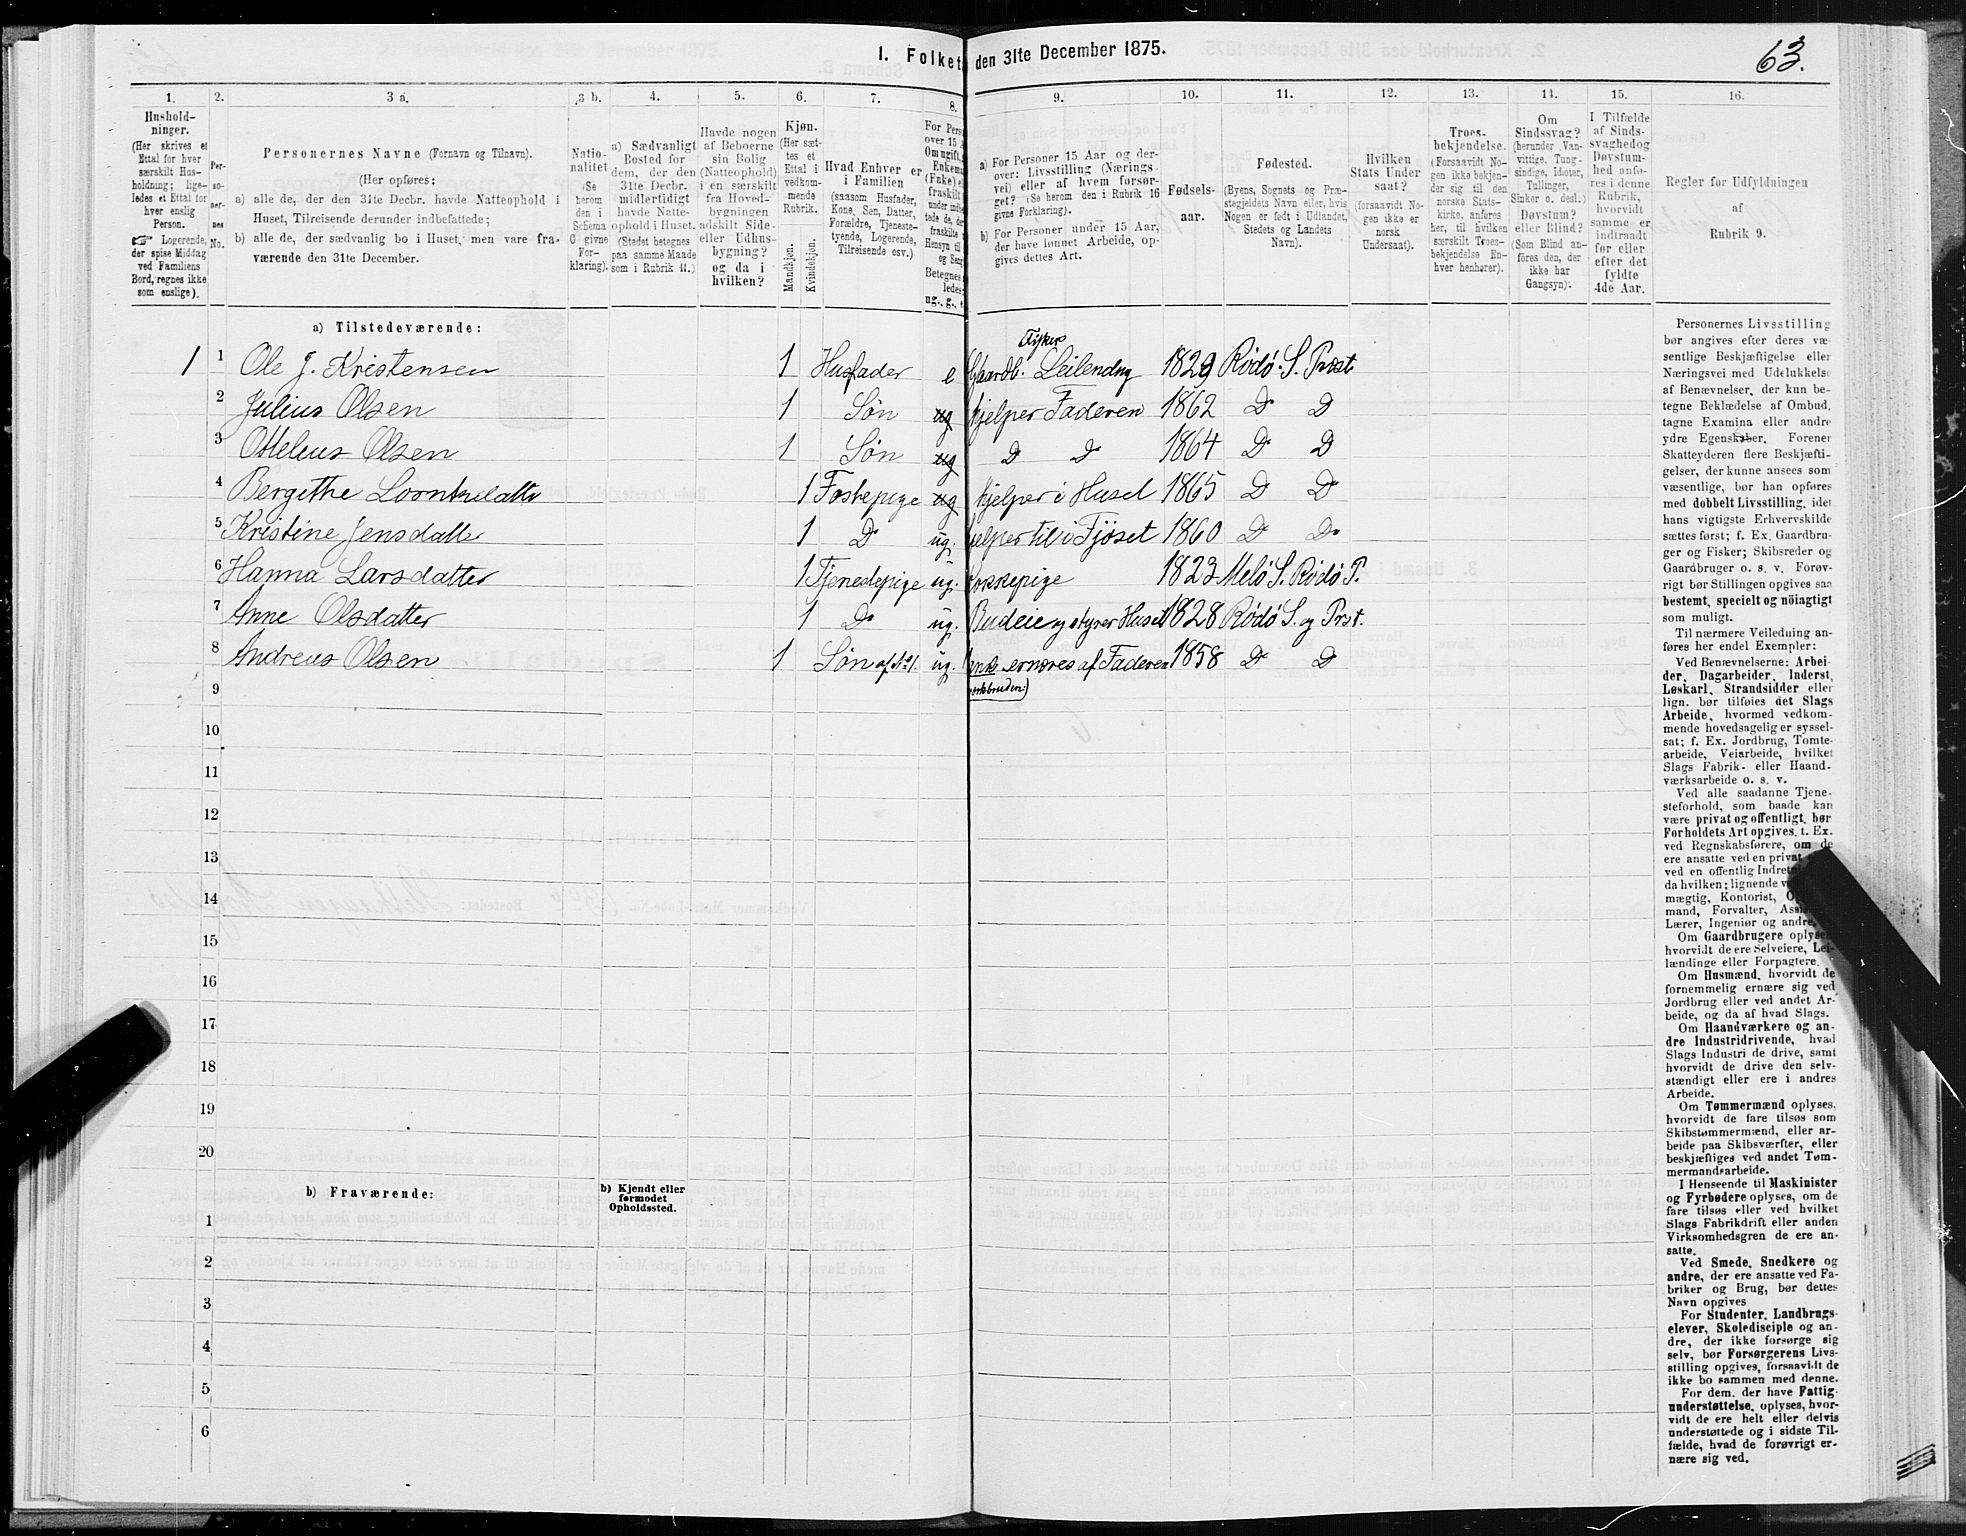 1. Folket den 31te December 1875.
63.
1. 2. 3 a. 3 b. 4. 5. 6. 7. 8. 9. 10. 11. 12. 13. 14. 15. 16.
Hushold-
ninger.
(Her skrives et
Ettal for hver
særskilt Hus-
holdning; lige-
ledes et Ettal for
hver enslig
Person.
Logerende,
der spise Middag
ved Familiens
Bord, regnes ikke
som enslige).
Per-
so-
ner-
nes
No.
Personernes Navne (Fornavn og Tilnavn).
(Her opføres:
a) alle de, der den 31te Decbr. havde Natteophold i
Huset, Tilreisende derunder indbefattede;
b) alle de, der sædvanlig bo i Huset, men vare fra-
værende den 31te December.
Natio-
nalitet
(Se
herom
den i
Schema
C givne
For-
klaring).
a) Sædvanligt
Bosted for
dem, der den
31te Decbr.
midlertidigt
havde Natte-
ophold i Huset.
(Stedet betegnes
paa samme Maade
som i Rubrik 11.)
Havde nogen
af Beboerne
sin Bolig
(Natteophold)
i en særskilt
fra Hoved-
bygningen
adskilt Side-
eller Udhus-
bygning?
og da i
hvilken?
Kjøn.
(Her sæt-
tes et
Ettal i
vedkom-
mende
Rubrik.
Mandkjøn.
Kvindekjøn.
Hvad Enhver er
i Familien
(saasom Husfader,
Kone, Søn, Datter,
Forældre, Tjeneste-
tyende, Logerende,
Tilreisende osv.)
For Pers
over 15 A
Om ugift,
Enkema
(Enke) e
fraskilt
under indbe
tede de, de
fraskilte
Hensyn til
og Seng
Betegnes
ledes:
ug., g., e
a) For Personer 15 Aar og der-
over: Livsstilling (Nærings-
vei) eller af hvem forsør-
get? (Se herom den i Rubrik 16
givne Forklaring).
b) For Personer under 15 Aar,
der have lønnet Arbeide, op-
gives dettes Art.
Fødsels-
aar.
Fødested.
(Byens, Sognets og Præ-
stegjeldets Navn eller, hvis
Nogen er født i Udlandet,
Stedets og Landets
Navn).
Hvilken
Stats Under
saat?
(forsaavidt No-
gen ikke er
norsk
Undersaat).
Troes-
bekjendelse.
(Forsaavidt No-
gen ikke bekjen-
der sig til den
norske Stats-
kirke, anføres
her, til hvilken
særskilt Troes-
bekjendelse En-
hver henhører).
Om
Sindssvag?
(herunder Van-
vittige, Tung-
sindige, Idioter,
Tullinger,
Sinker o. desl.)
Døvstum?
eller Blind?
(Som Blind an-
føres den, der
ikke har
Gangsyn).
I Tilfælde
af Sinds-
svaghed og
Døvstum-
hed anfø-
res i denne
Rubrik,
hvorvidt
samme er
indtraadt
før eller
efter det
fyldte
4de Aar.
Regler for Udfyldningen
af
Rubrik 9.
a) Tilstedeværende:
Fisker
1 1 Ole J. Kristensen 1 Husfader e Gaardb. Leilending 1829 Rödö S. Præst
2 Julius Olsen 1 Søn ug hjelper Faderen 1862 Do D
3 Ottelius Olsen 1 Søn ug D Do 1864 Do D
4 Bergithe Lorntsdatte 1 Fosterpige ug hjelper i Huset 1865 D Do
5 Kristine Jensdatter 1 Do ug. jelper til i Fjöset 1860 D Do
6 Hanna Larsdatter 1 Tjenestepige ug. okkepige 1823 Melö S. Rödö P.
7 Anne Olsdatter 1 Do ug. Budeie og styrer Huset 1828 Rödö S. og Prst.
8 Andreas Olsen 1 Søn af No 1. ug. ernæres af Faderen 1858 D D
9
10
11
12
13
14
15
16
17
18
19
20
b) Fraværende:
b) Kjendt eller
formodet
Opholdssted.
1
2
3
4
5
6
Personernes Livsstilling
bør angives efter deres væ-
sentlige Beskjæftigelse eller
Næringsvei med Udelukkelse
af Benævnelser, der kun be-
tegne Beklædelse af Ombud,
tagne Examina eller andre
ydre Egenskaber. Forener
Skatteyderen flere Beskjæfti-
gelser, der kunne ansees som
væsentlige, bør han opføres
med dobbelt Livsstilling, idet
hans vigtigste Erhvervskilde
sættes først; f. Ex. Gaardbru-
ger og Fisker; Skibsreder og
Gaardbruger o. s. v. Forøv-
rigt bør Stillingen opgives saa
bestemt, specielt og nöiagtigt
som muligt.
Til nærmere Veiledning an-
føres her endel Exempler:
Ved Benævnelserne: Arbei-
der, Dagarbeider, Inderst,
Løskarl, Strandsidder eller
lign. bør tilføies det Slags
Arbeide, hvormed vedkom-
mende hovedsagelig er syssel-
sat; f. Ex. Jordbrug, Tomte-
arbeide, Veiarbeide, hvilket
Slags Fabrik- eller Haand-
værksarbeide o. s. v.
Ved alle saadanne Tjene-
steforhold, som baade kan
være privat og offentligt, bør
Forholdets Art opgives, t. Ex.
ved Regnskabsførere, om de
ere ansatte ved en privat
ved en offentlig Indret
da hvilken; lignende v
mægtig, Kontorist, O
mand, Forvalter, Ass
Lærer, Ingeniør og andre.
Om Gaardbrugere oplyse
hvorvidt de ere Selveiere, Lei-
lændinge eller Forpagtere.
Om Husmænd, hvorvidt de
fornemmelig ernære sig ved
Jordbrug eller ved andet Ar-
beide, og da af hvad Slags.
Om Haandværkere og an-
dre Industridrivende, hvad
Slags Industri de drive, samt
hvorvidt de drive den selv-
stændigt eller ere i andres
Arbeide.
Om Tømmermænd oplyses,
hvorvidt de fare tilsøs som
Skibstømmermænd, eller ar-
beide paa Skibsværfter, eller
beskjæftiges ved andet Tøm-
mermandsarbeide.
I Henseende til Maskinister
og Fyrbødere oplyses, om de
fare tilsøs eller ved hvilket
Slags Fabrikdrift eller anden
Virksomhedsgren de ere an-
satte.
Ved Smede, Snedkere og
andre, der ere ansatte ved Fa-
briker og Brug, bør dettes
Navn opgives
For Studenter, Landbrugs-
elever, Skoledisciple og an-
dre, der ikke forsørge sig
selv, bør Forsørgerens Livs-
stilling opgives, forsaavidt de
ikke bo sammen med denne.
For dem, der have Fattig-
understøttelse, oplyses, hvor-
vidt de ere helt eller delvis
understøttede og i sidste Til-
fælde, hvad de forøvrigt er-
nære sig ved.